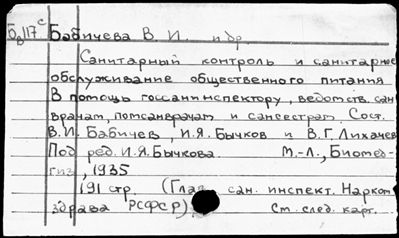 Б8117с Бабичева В. И. и др.
Санитарный контроль и санитарное
обслуживание общественного питания
В помощь госсанинспектору, ведомств. сан
врачам, помсанврачам и сансестрам. Сост.
В.И. Бабичев, И.Я. Бычков и В.Г. Лихачев
Под ред. И.Я. Бычкова. М.-Л., Биомед-
гиз, 1935
191 стр. (Глав. сан. инспект. Нарком
здрава РСФСР)
См. след. карт.